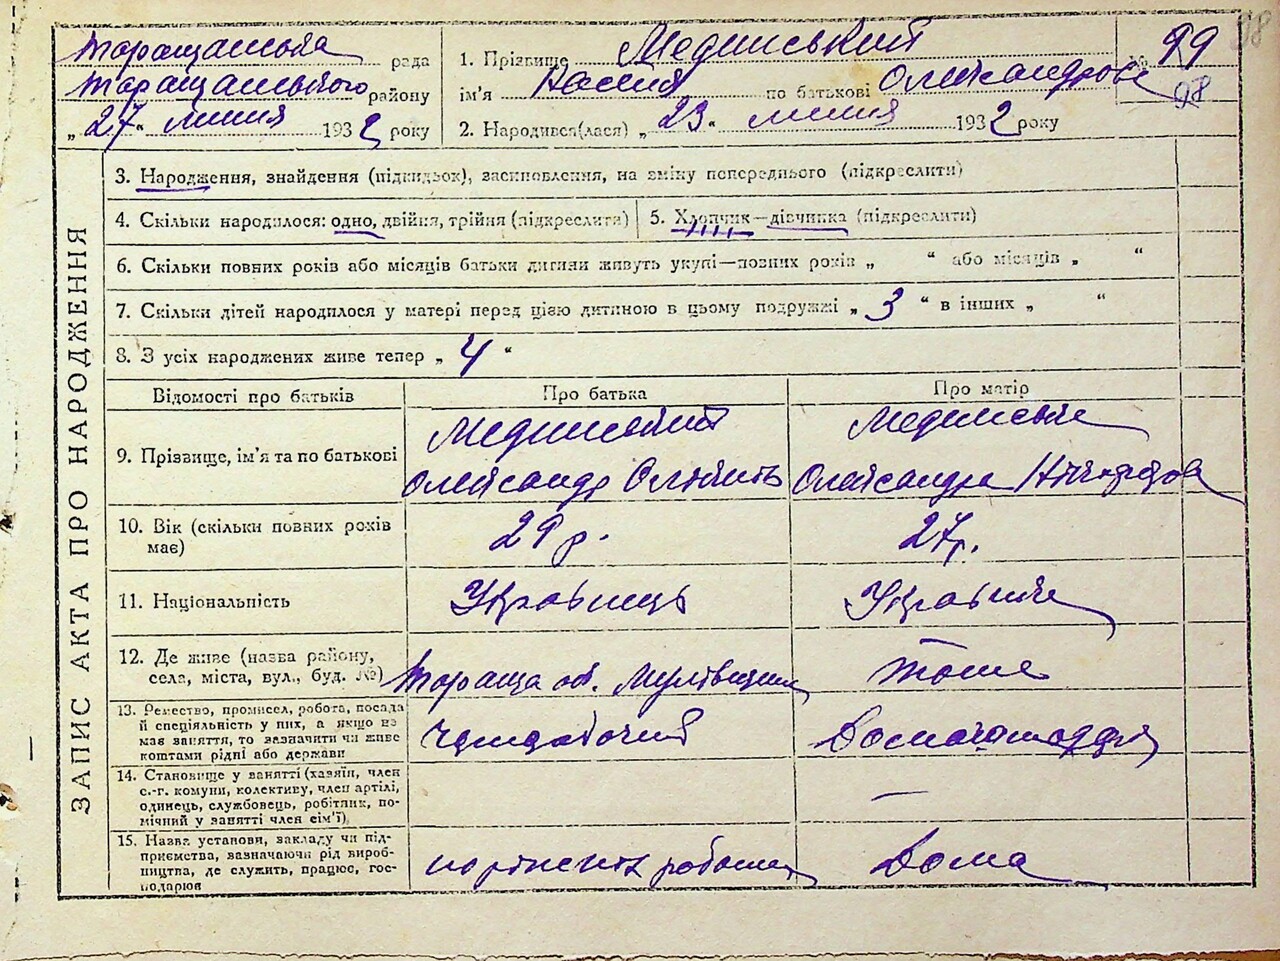 98
Таращанська рада
Таращанського району
„27“ липня 1932 року
1. Прізвище Мединський № 99
ім'я по батькові Олександрові 98
2. Народився(лася) „23“ липня 1932 року
ЗАПИС АКТА ПРО НАРОДЖЕННЯ
3. Народження, знайдення (підкидьок), засиновлення, на зміну попереднього (підкреслити)
4. Скільки народилося: одно, двійня, трійня (підкреслити)
5. Хлопчик—дівчинка (підкреслити)
6. Скільки повних років або місяців батьки дитини живуть укупі—повних років „ “ або місяців „ “
7. Скільки дітей народилося у матері перед цією дитиною в цьому подружжі „3“ в інших „ “
8. З усіх народжених живе тепер „4“
Відомості про батьків Про батька Про матір
9. Прізвище, ім'я та по батькові
Мединський
Олександр
Мединська
Олександра
10. Вік (скільки повних років
має)
29 р.
27 р.
11. Національність
Українець
Українка
12. Де живе (назва району,
села, міста, вул., буд. №)
Тараща
тоже
13. Ремество, промисел, робота, посада
й спеціяльність у них, а якщо не
має заняття, то зазначити чи живе
коштами рідні або держави
Чорнорабочий
Домогосподарка
14. Становище у занятті (хазяїн, член
с.-г. комуни, колективу, член артілі,
одинець, службовець, робітник, по-
мічний у занятті член сім'ї)
—
15. Назва установи, закладу чи під-
приємства, зазначаючи рід вироб-
ництва, де служить, працює, гос-
подарює
Дома